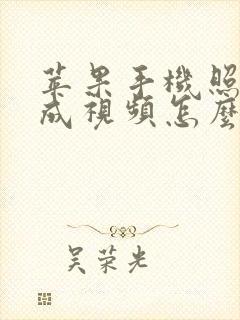 苹果手機照
成視頻怎麼
吴荣光